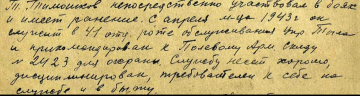 т. Тимошков непосредственно участвовал в боях
и имеет ранение. С апреля м-ца 1943г он
служит в 41 отд. роте обслуживания Упр Тыла
и прикомандирован к Полевому Арм. складу
№ 2423 для охраны. Службу несет хорошо,
дисциплинирован, требователен к себе на
службе и в быту.